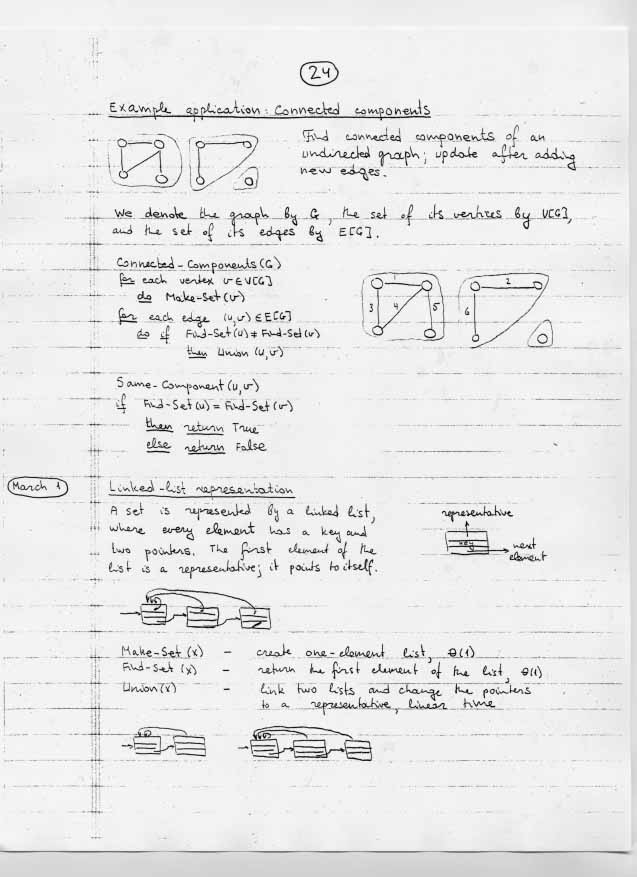 24
Example application: Connected components
Find connected components of an
undirected graph; update after adding
new edges.
We denote the graph by G, the set of its vertices by V[G],
and the set of its edges by E[G].
Connected-Components(G)
for each vertex v∈V[G]
do Make-Set(v)
for each edge (u,v)∈E[G]
do if Find-Set(u)≠Find-Set(v)
then Union (u,v)
1
2
3
4
5
6
Same-Component(u,v)
if Find-Set(u)=Find-Set(v)
then return True
else return False
March 1
Linked-list representation
A set is represented by a linked list,
where every element has a key and
two pointers. The first element of the
list is a representative; it points to itself.
representative
key
next
element
Make-Set(x) - create one-element list, Θ(1)
Find-Set(x) - return the first element of the list, Θ(1)
Union(x) - link two lists and change the pointers
to a representative, linear time